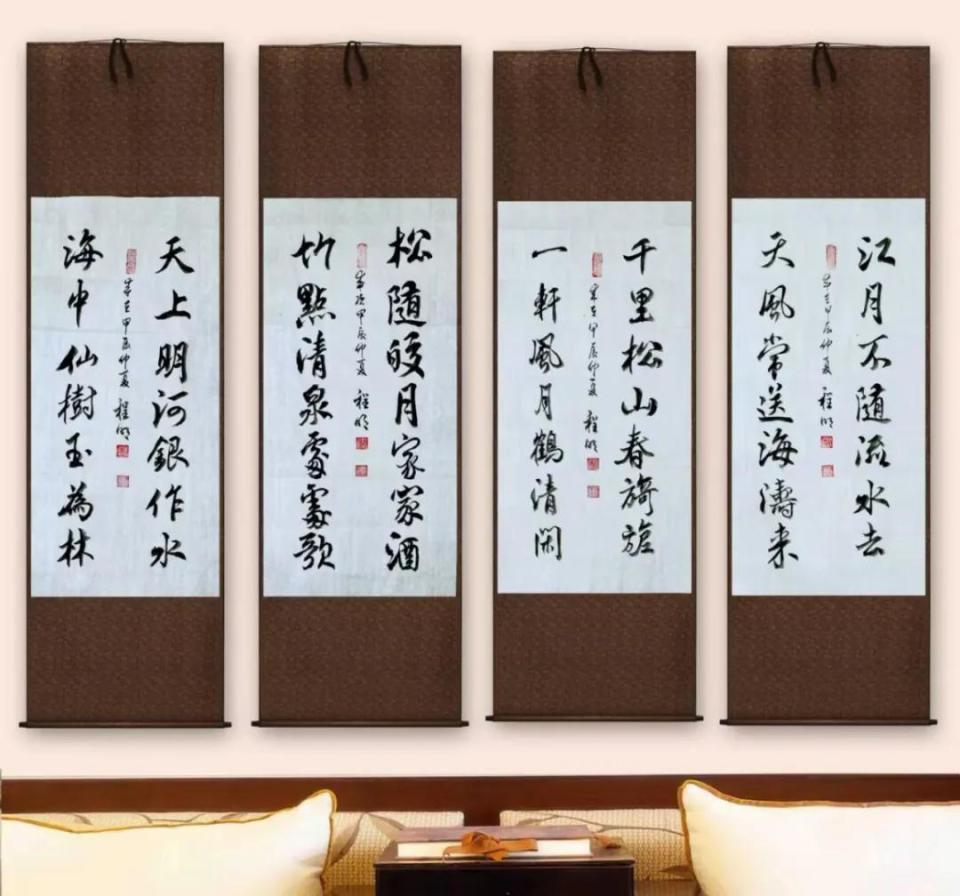 江月不隨流水去
歲在甲辰仲夏 程明
天風常送海濤来
千里松山春旖旎
歲在甲辰仲夏 程明
一軒風月鶴清閑
松隨皎月家家酒
歲次甲辰仲夏 程明
竹點清泉處處歌
天上明河銀作水
歲在甲辰仲夏 程明
海中仙樹玉為林